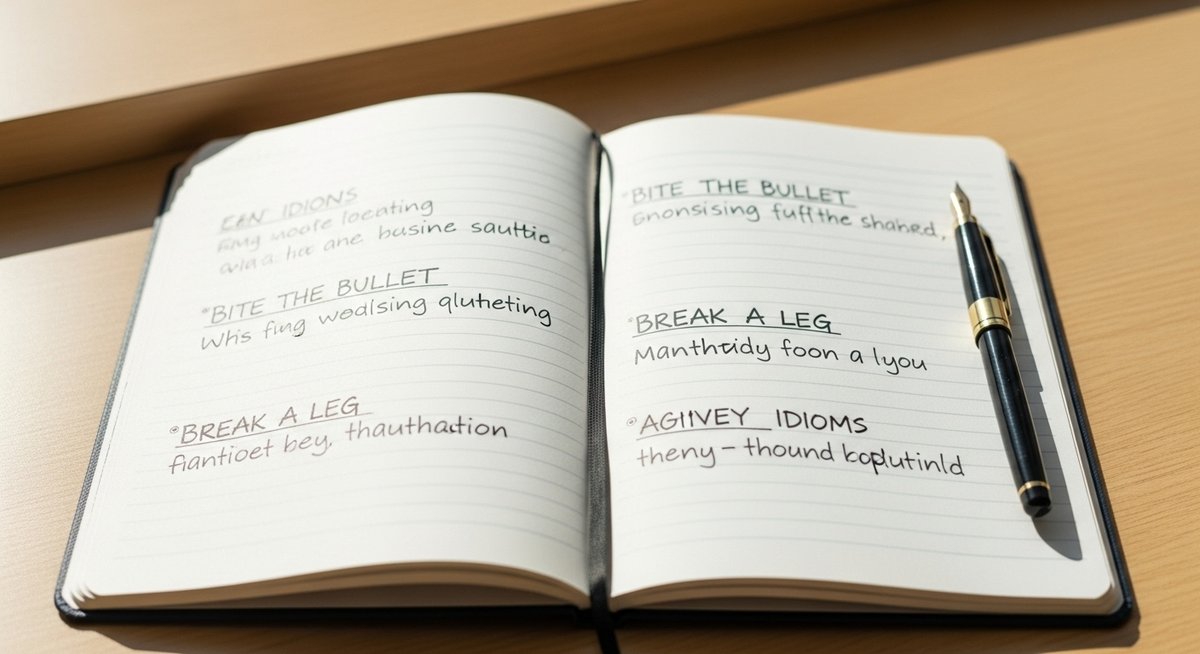 IDIONS
locating
ane busine sauttio
BITE THE BULLET
Whis fing wodlsing qlutheting
BREAK A LEG
fiantioet bey, thauthadtion
BITE THE BULLET
Gnonsising fuflthe shahed,
BREAK A LEG
Manthtidy foon a lyou
AGIIVEY IDIOMS
theny – thound koplutinld